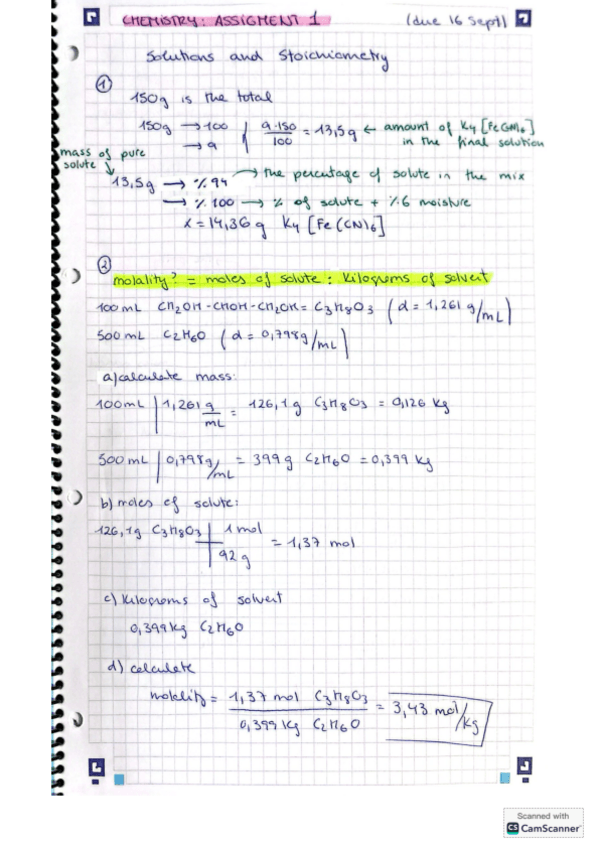 CHEMISTRY: ASSIGMENT 1 (due 16 Sept)
Solutions and Stoichiometry
①
150g is the total
150g → 100
→ 9
9·150 / 100 = 13,5g ← amount of K4[Fe(CN)6]
in the final solution
mass of pure
solute
13,5g → % 94 → the percentage of solute in the mix
→ % 100 → % of solute + %6 moisture
x = 14,36 g K4[Fe(CN)6]
②
molality? = moles of solute : Kilograms of solvent
100 mL CH2OH-CHOH-CH2OH = C3H8O3 (d = 1,261 g/mL)
500 mL C2H6O (d = 0,798g/mL)
a) calculate mass:
100mL | 1,261 g/mL = 126,1 g C3H8O3 = 0,126 Kg
500 mL | 0,798g/mL = 399 g C2H6O = 0,399 Kg
b) moles of solute:
126,1g C3H8O3 | 1 mol / 92 g = 1,37 mol
c) Kilograms of solvent
0,399 Kg C2H6O
d) calculate
molality = 1,37 mol C3H8O3 / 0,399 Kg C2H6O = 3,43 mol/Kg
Scanned with
CS CamScanner